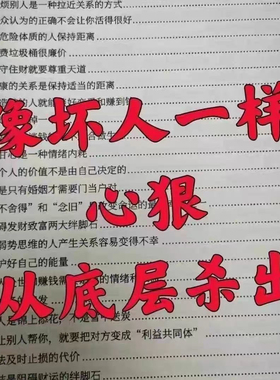 烦别人是一种拉近关系的方式
众认为的正确不会让你活得很好
危险体质的人保持距离
费垃圾桶很廉价
守住财就要尊重天道
康的关系是保持适当的距离
像坏人一样
心是一种情绪内耗
个人的价值不是由自己决定的
是只有婚姻才需要门当户对
心狠
不舍得”和“念旧”是
得发财致富两大绊脚石
弱势思维的人产生关系容易变得不幸
护好自己的能量
从底层杀出
让别人帮你，就要把对方变成“利益共同体”
法及时止损的代价
是阻碍财运的绊脚石